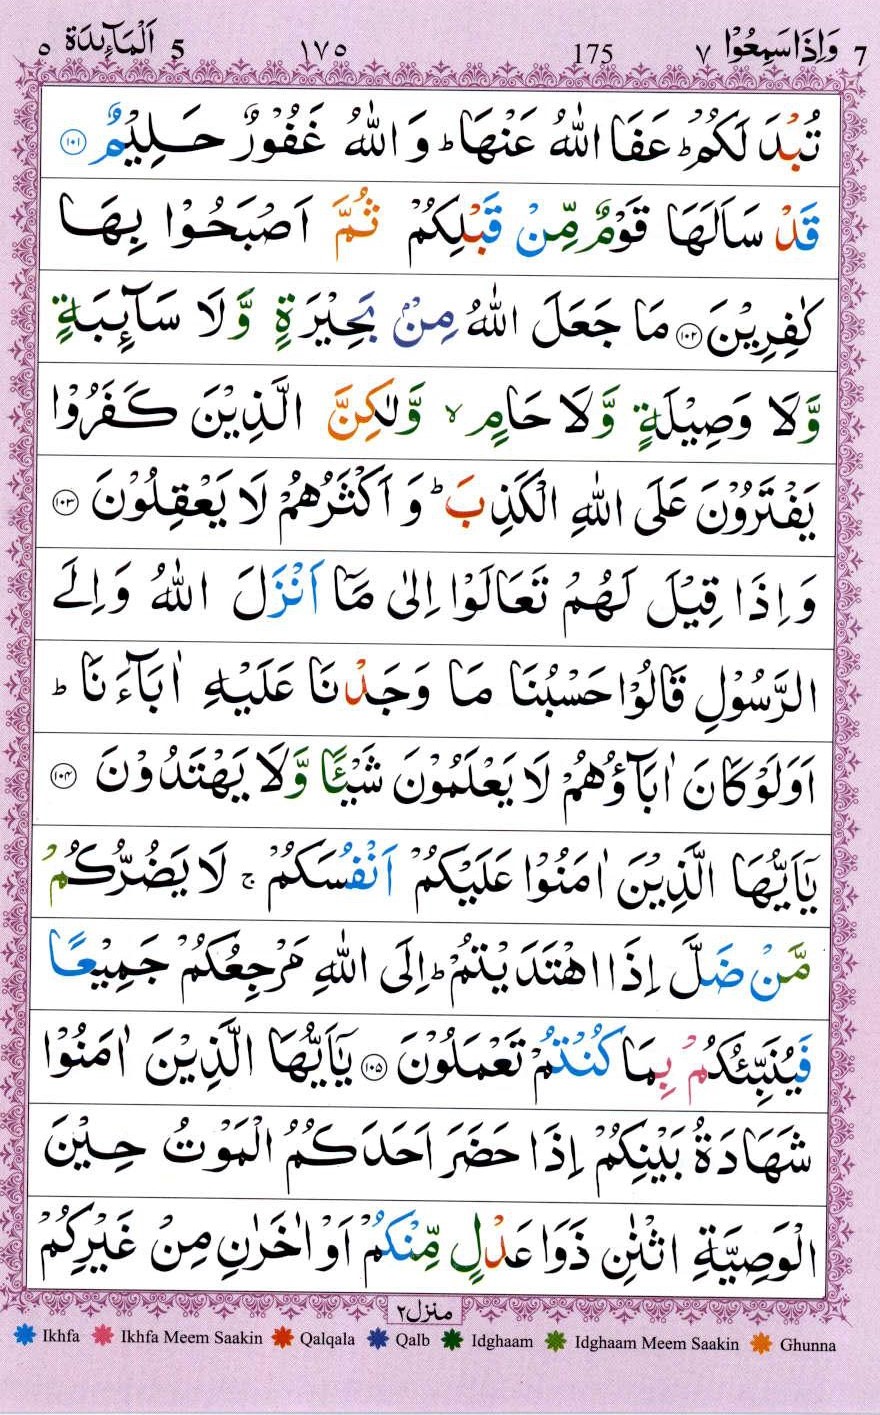 7 وَاِذَا سَمِعُوْا ٧ 175 ١٧٥ 5 اَلْمَآئِدَة ٥
تُبْدَ لَكُمْ ؕ عَفَا اللّٰهُ عَنْهَا ؕ وَ اللّٰهُ غَفُوْرٌ حَلِيْمٌ ﴿۱۰۱﴾
قَدْ سَاَلَهَا قَوْمٌ مِّنْ قَبْلِكُمْ ثُمَّ اَصْبَحُوْا بِهَا
كٰفِرِيْنَ ﴿۱۰۲﴾ مَا جَعَلَ اللّٰهُ مِنْۢ بَحِيْرَةٍ وَّ لَا سَآئِبَةٍ
وَّ لَا وَصِيْلَةٍ وَّ لَا حَامٍ ۙ وَّ لٰكِنَّ الَّذِيْنَ كَفَرُوْا
يَفْتَرُوْنَ عَلَى اللّٰهِ الْكَذِبَ ؕ وَ اَكْثَرُهُمْ لَا يَعْقِلُوْنَ ﴿۱۰۳﴾
وَ اِذَا قِيْلَ لَهُمْ تَعَالَوْا اِلٰى مَاۤ اَنْزَلَ اللّٰهُ وَ اِلَى
الرَّسُوْلِ قَالُوْا حَسْبُنَا مَا وَجَدْنَا عَلَيْهِ اٰبَآءَنَا ؕ
اَوَلَوْ كَانَ اٰبَآؤُهُمْ لَا يَعْلَمُوْنَ شَيْـًٔا وَّ لَا يَهْتَدُوْنَ ﴿۱۰۴﴾
يٰۤاَيُّهَا الَّذِيْنَ اٰمَنُوْا عَلَيْكُمْ اَنْفُسَكُمْ ۚ لَا يَضُرُّكُمْ
مَّنْ ضَلَّ اِذَا اهْتَدَيْتُمْ ؕ اِلَى اللّٰهِ مَرْجِعُكُمْ جَمِيْعًا
فَيُنَبِّئُكُمْ بِمَا كُنْتُمْ تَعْمَلُوْنَ ﴿۱۰۵﴾ يٰۤاَيُّهَا الَّذِيْنَ اٰمَنُوْا
شَهَادَةُ بَيْنِكُمْ اِذَا حَضَرَ اَحَدَكُمُ الْمَوْتُ حِيْنَ
الْوَصِيَّةِ اثْنٰنِ ذَوَا عَدْلٍ مِّنْكُمْ اَوْ اٰخَرٰنِ مِنْ غَيْرِكُمْ
منزل ٢
Ikhfa Ikhfa Meem Saakin Qalqala Qalb Idghaam Idghaam Meem Saakin Ghunna